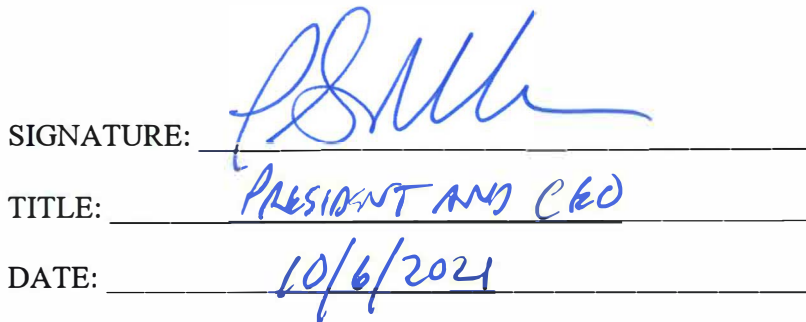 SIGNATURE:
TITLE: PRESIDENT AND CEO
DATE: 10/6/2021